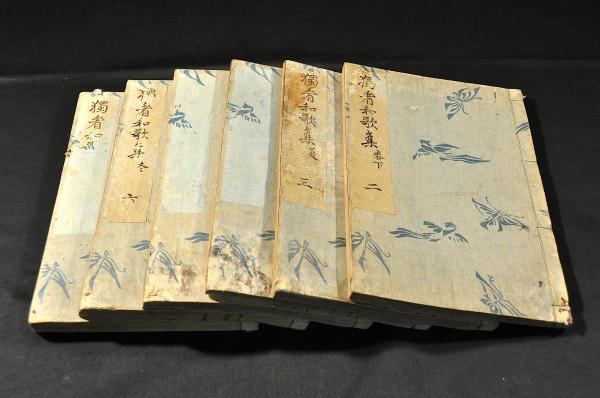 獨看和歌集 春下
二
獨看和歌集 夏
三
看和歌集 冬
六
獨看